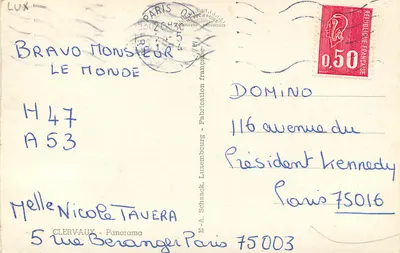 LUX
BRAVO MONSIEUR
LE MONDE
H 47
A 53
Melle NICOLE TAVERA
5 rue Béranger Paris 75003
CLERVAUX - Panorama
M.-A. Schaack, Luxembourg - Fabrication française
PARIS
REPUBLIQUE FRANÇAISE
0,50
DOMINO
116 avenue du
Président Kennedy
Paris 75016